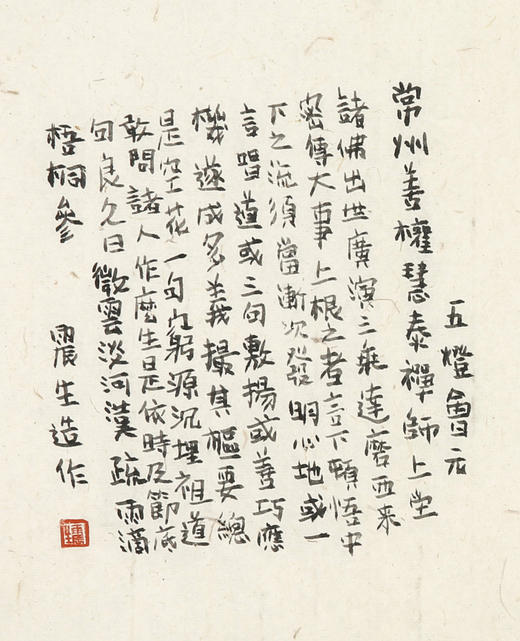 五燈會元
常州善權慧泰禪師上堂
諸佛出世廣演三乘達磨西來
密傳大事上根之者言下頓悟中
下之流須當漸次發明心地或一
言唱道或三句敷揚或善巧應
機遂成多義撮其樞要總
是空花一句窮源沉埋祖道
敢問諸人作麼生是依時及節底
句良久曰微雲淡河漢疏雨滴
梧桐參
震生造作